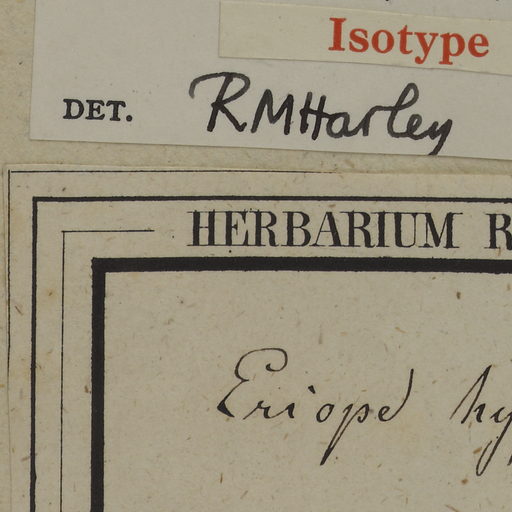 Isotype
DET. RMHarley
HERBARIUM
Eriope